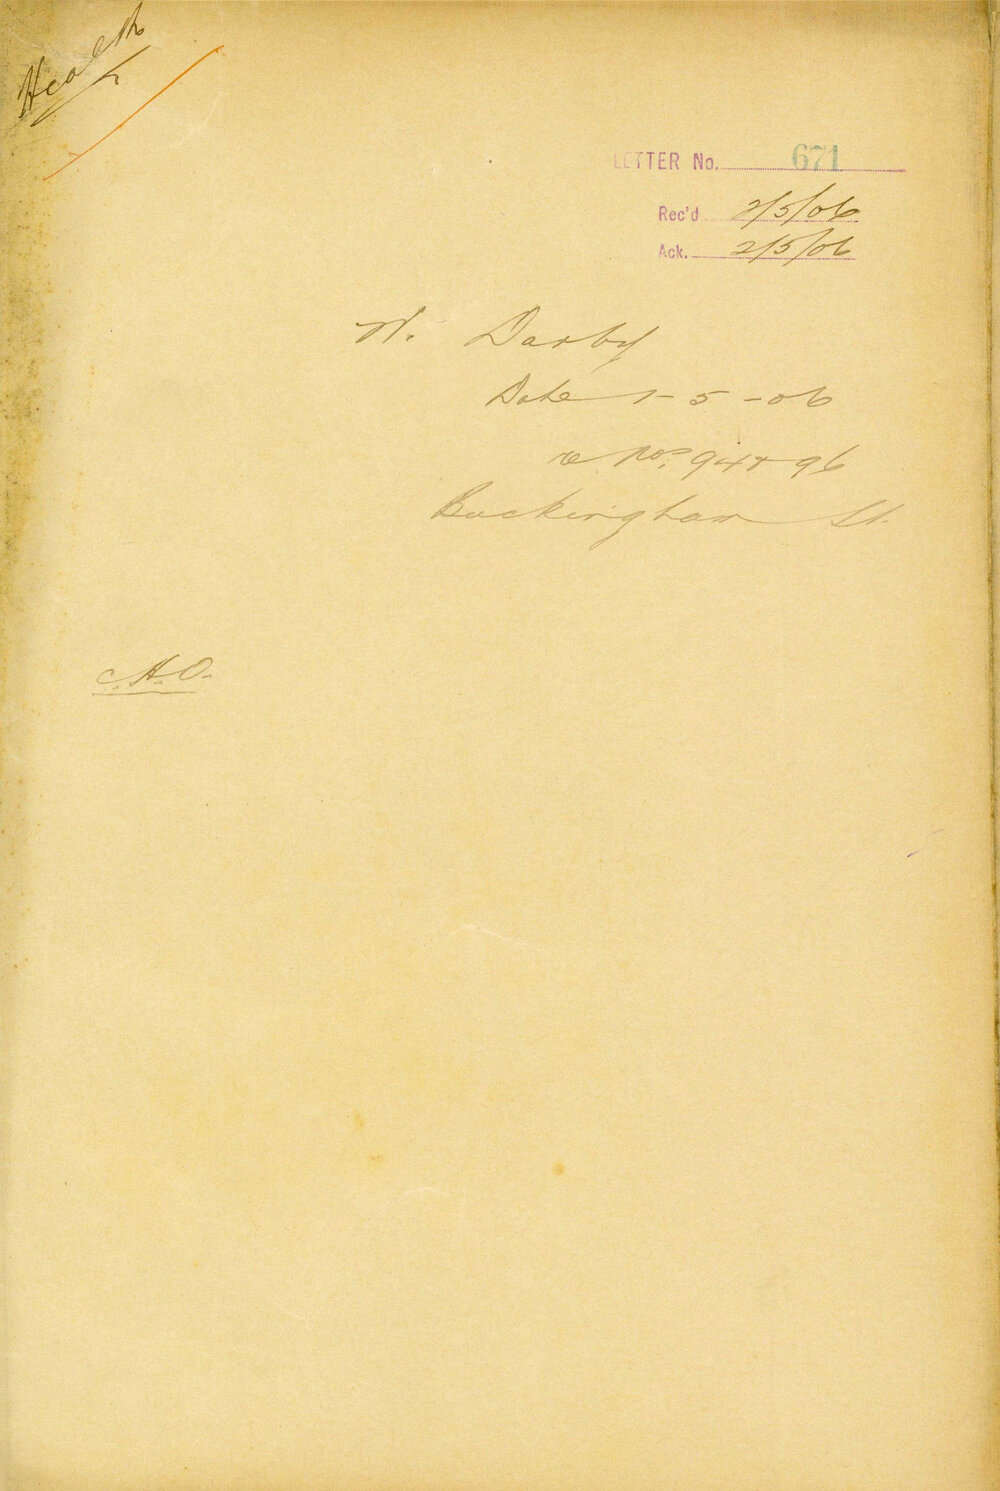 Health
LETTER No. 671
Rec'd 2/5/06
Ack. 2/5/06
W. Darby
Date 1-5-06
re Nos. 94 & 96
Buckingham St.
H.O.